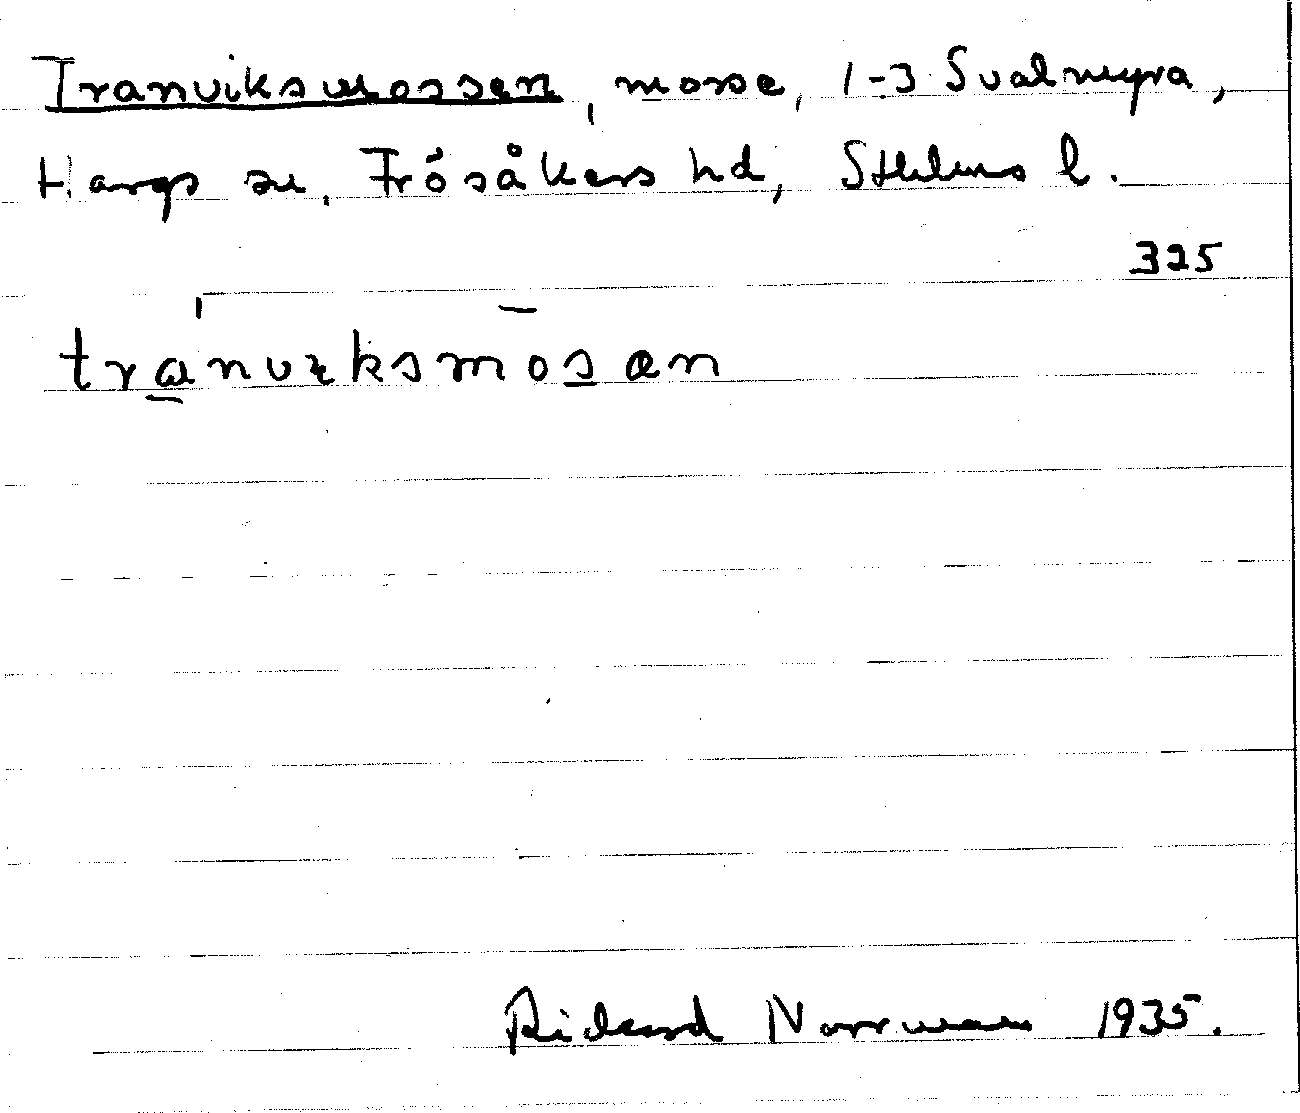 Tranviksmossen, mosse, 1-3 Svalmyra,
Hargs sn, Frösåkers hd, Sthlms l.
325
tranviksmosan
Rickard Norrman 1935.